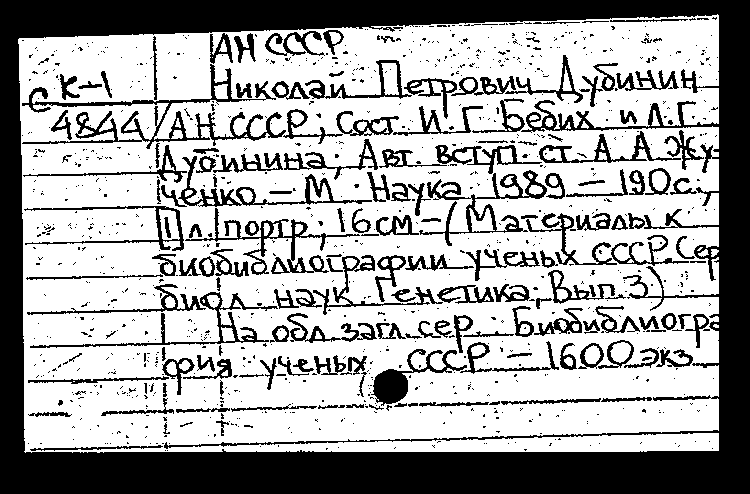 АН СССР.
Николай Петрович Дубинин
с К-1
4844 / АН СССР; Сост. И. Г Бебих и Л. Г.
Дубинина; Авт. вступ. ст. А. А Жу-
ченко. – М : Наука, 1989 – 190с.,
[1] л. портр; 16см – (Материалы к
биобиблиографии ученых СССР. Сер
биол. наук. Генетика; Вып. 3)
На обл. загл. сер.: Биобиблиогра
фия ученых СССР – 1600 экз